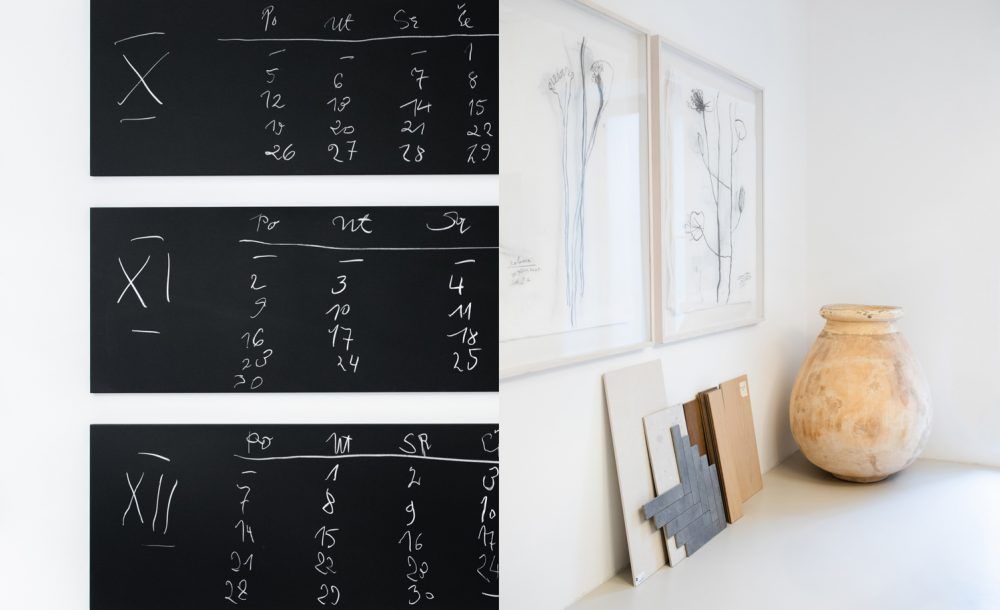 X
Po Ut St Če
– – – 1
5 6 7 8
12 13 14 15
19 20 21 22
26 27 28 29
XI
Po Ut St
– – –
2 3 4
9 10 11
16 17 18
23 24 25
30
XII
Po Ut SR
– 1 2 3
7 8 9 10
14 15 16 17
21 22 23 24
28 29 30 –